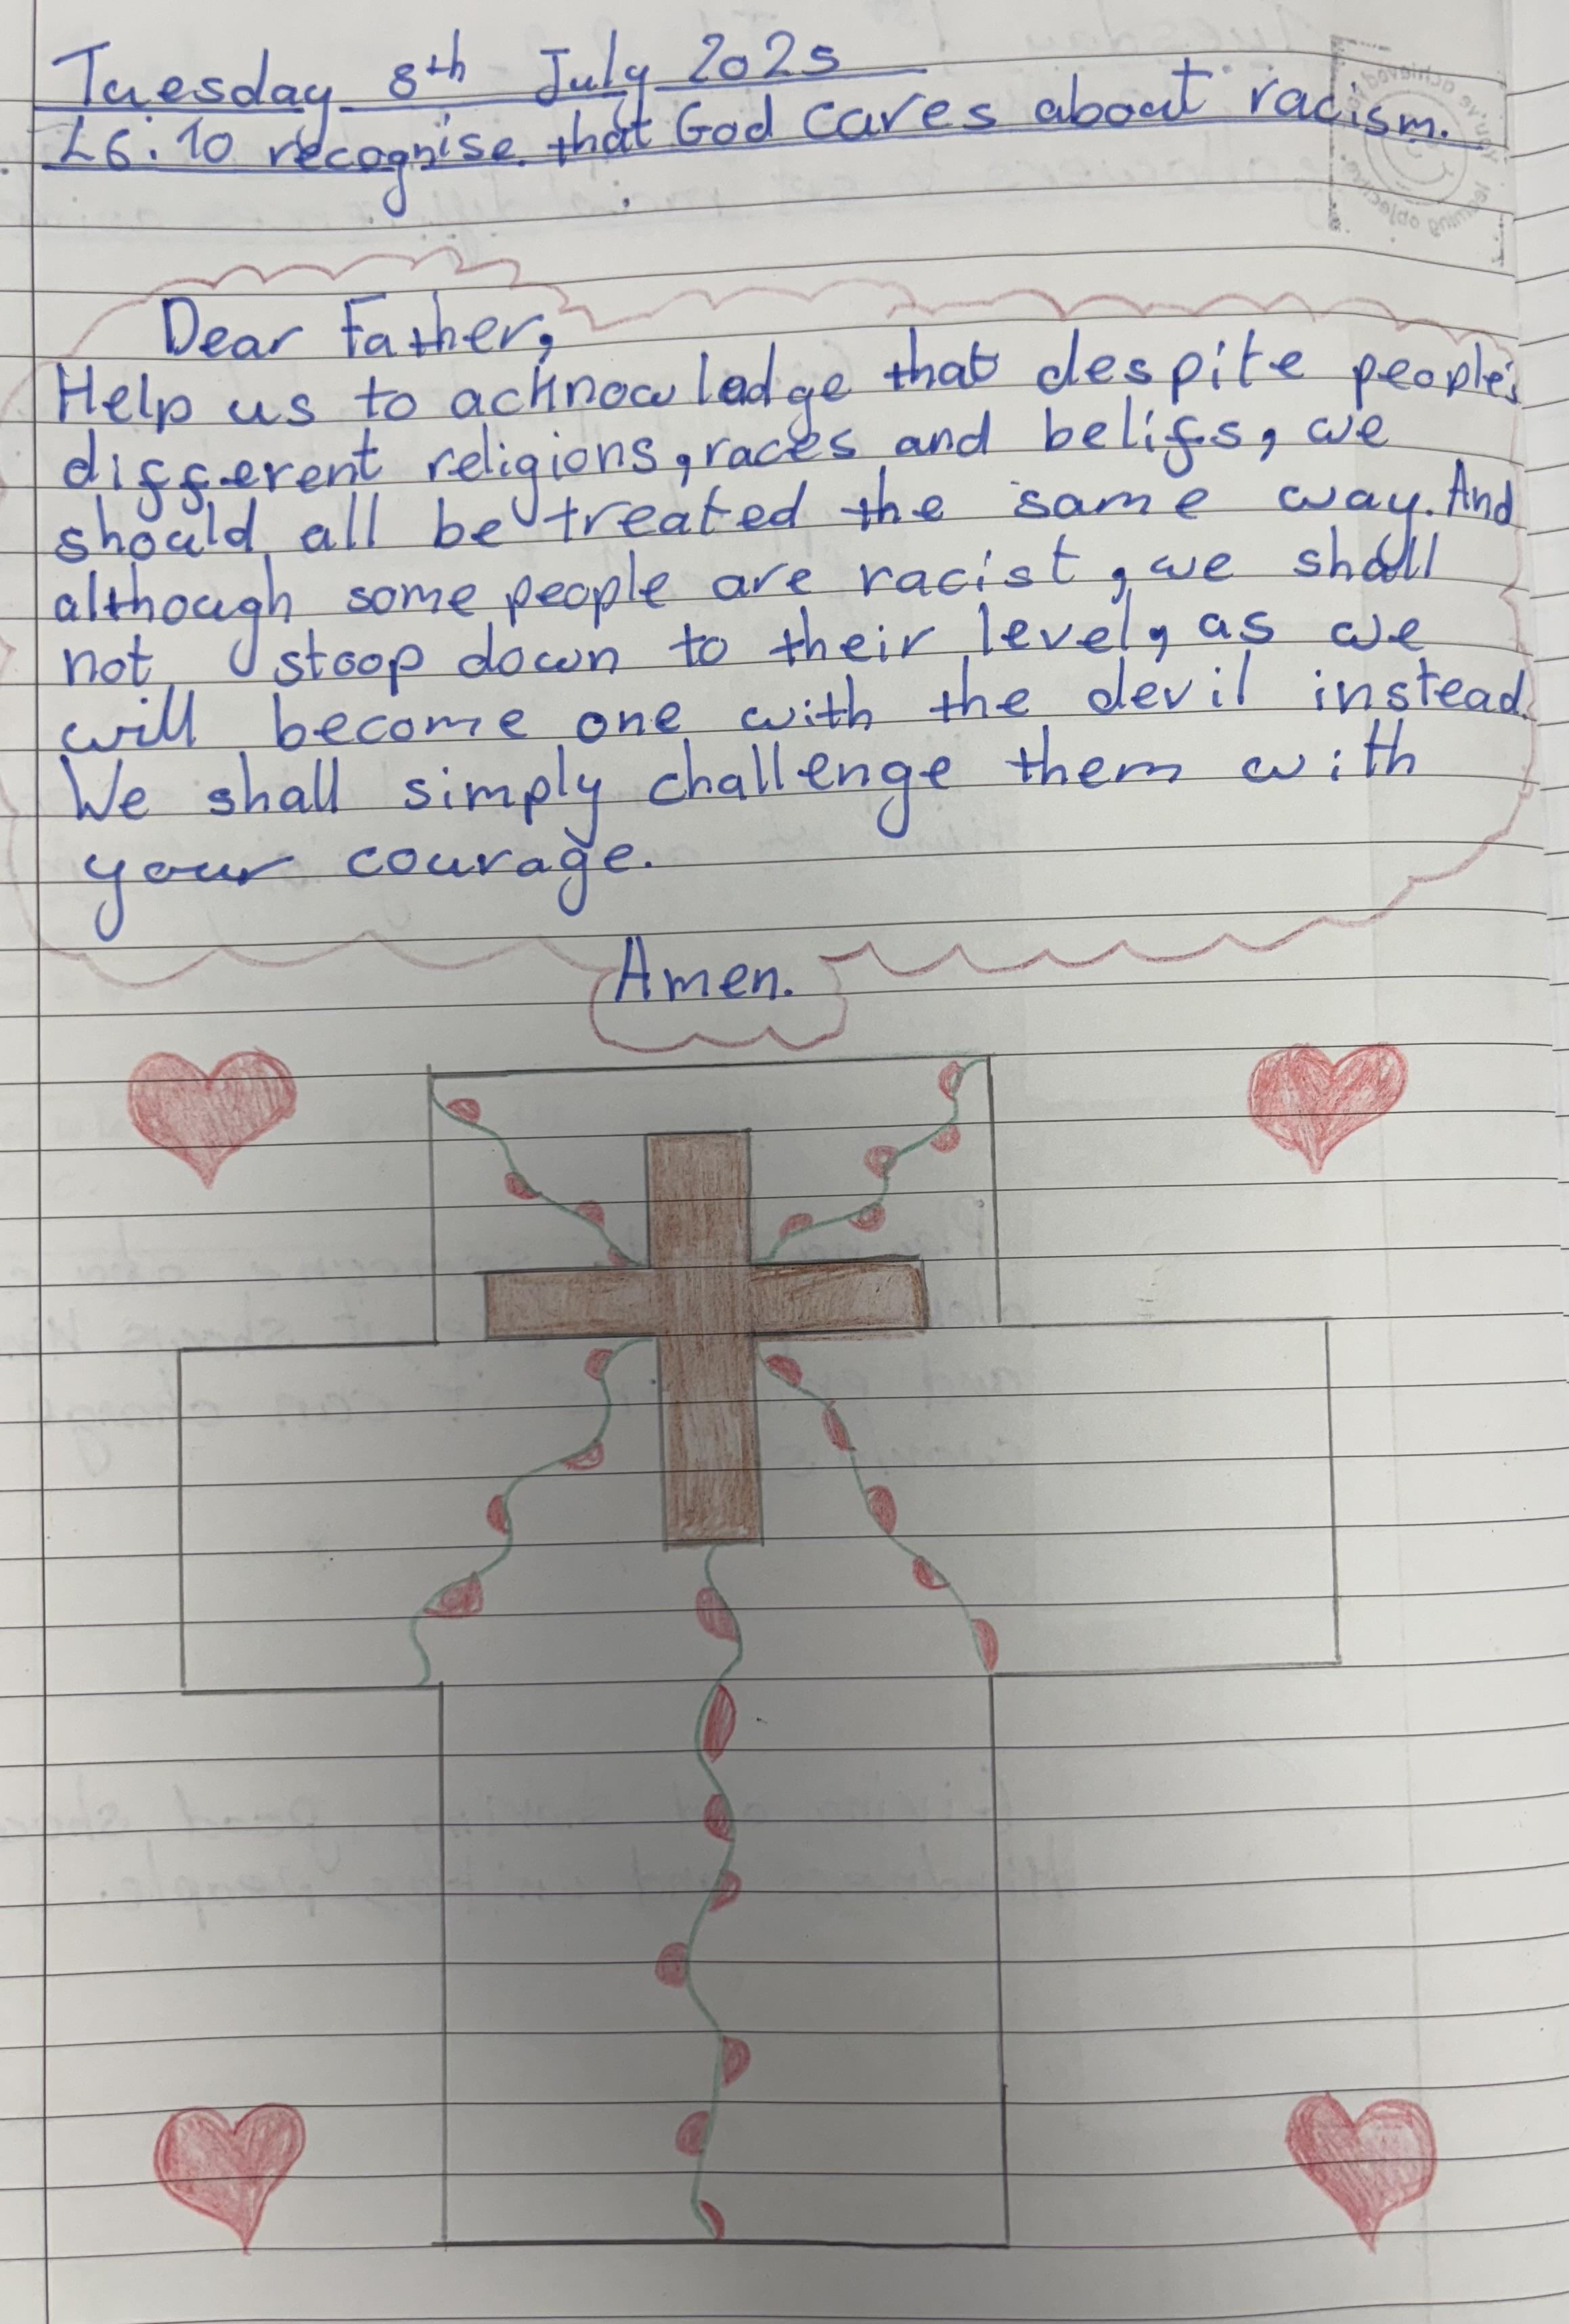 Tuesday 8th July 2025
L6:10 recognise that God cares about racism.
Dear Father,
Help us to acknowledge that despite people's
different religions, races and belifs, we
should all be treated the same way. And
although some people are racist, we shall
not stoop down to their level, as we
will become one with the devil instead.
We shall simply challenge them with
your courage.
Amen.